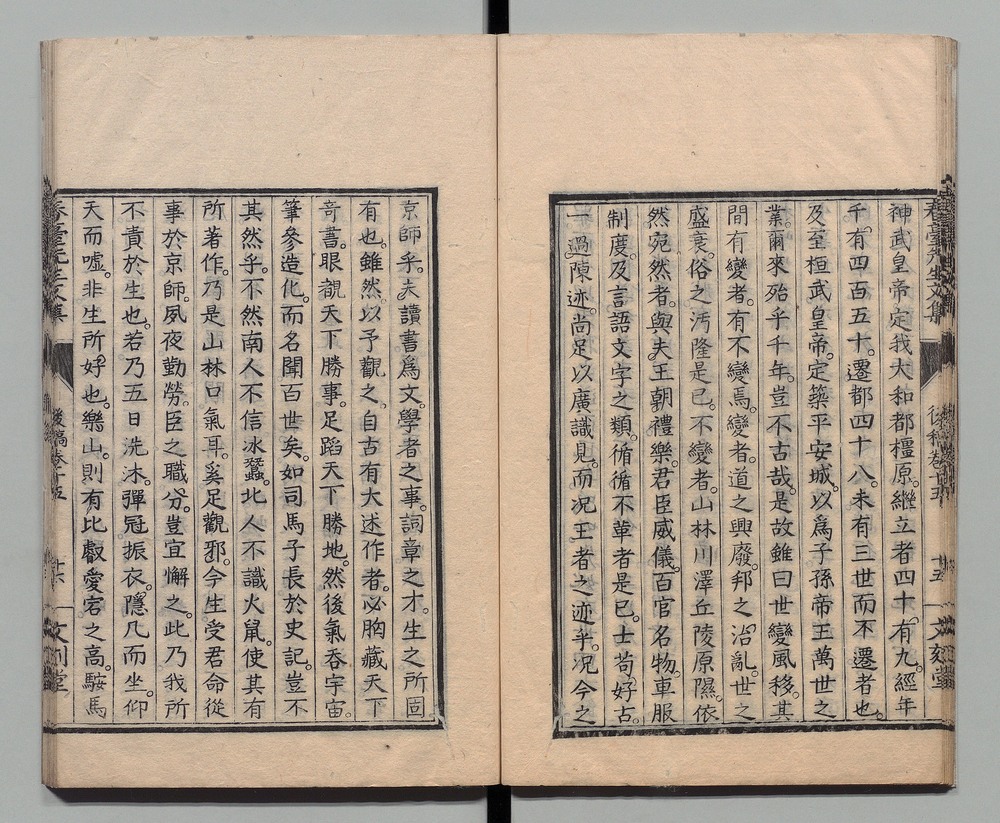 神武皇帝定我大和都橿原。繼立者四十有九。經年
千有四百五十。遷都四十八。未有三世而不遷者也。
及至桓武皇帝。定築平安城。以爲子孫帝王萬世之
業。爾來殆乎千年。豈不古哉。是故雖曰世變風移。其
間有變者。有不變焉。變者。道之興廢。邦之治亂。世之
盛衰。俗之汚隆是已。不變者。山林川澤丘陵原隰。依
然宛然者。與夫王朝禮樂。君臣威儀。百官名物。車服
制度。及言語文字之類。循循不革者是已。士苟好古。
一過陳迹。尚足以廣識見。而況王者之迹乎。況今之
京師乎。夫讀書爲文。學者之事。詞章之才。生之所固
有也。雖然以予觀之。自古有大述作者。必胸藏天下
奇書。眼覩天下勝事。足蹈天下勝地。然後氣吞宇宙。
筆參造化。而名聞百世矣。如司馬子長於史記。豈不
其然乎。不然南人不信冰蠶。北人不識火鼠。使其有
所著作。乃是山林口氣耳。奚足觀邪。今生受君命從
事於京師。夙夜勤勞。臣之職分。豈宜懈之。此乃我所
不責於生也。若乃五日洗沐。彈冠振衣。隱几而坐。仰
天而噓。非生所好也。樂山。則有比叡愛宕之高。駿馬
春臺先生文集
後稿卷十五
十五
文刻堂
春臺先生文集
後稿卷十五
十六
文刻堂